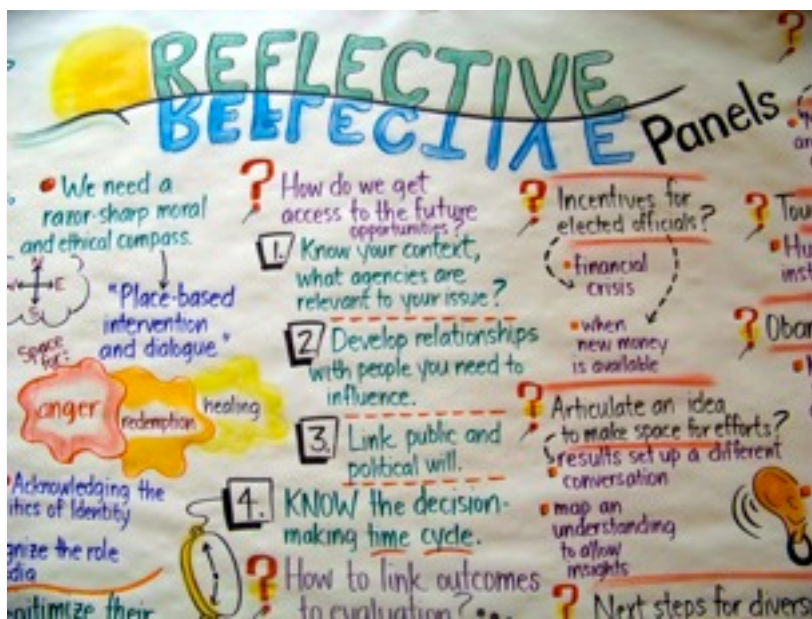 REFLECTIVE
REFLECTIVE
Panels
• We need a
razor-sharp moral
and ethical compass.
E
S
"Place-based
intervention
and dialogue"
Space
for:
anger
redemption
healing
• Acknowledging the
itics of Identity
gnize the role
dia
their
? How do we get
access to the future
opportunities?
1. Know your context,
what agencies are
relevant to your issue?
2. Develop relationships
with people you need to
influence.
3. Link public and
political will.
4. KNOW the decision-
making time cycle.
? How to link outcomes
to evaluation?...
? Incentives for
elected officials?
• financial
crisis
• when
new money
is available
? Articulate an idea
to make space for efforts?
results set up a different
• conversation
• map an
understanding
to allow
insights
? Next steps for divers
?
an
? Tou
• Hu
inst
? Obar